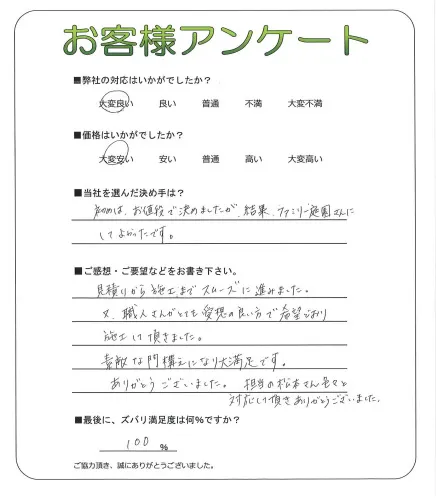 お客様アンケート
■弊社の対応はいかがでしたか？
大変良い 良い 普通 不満 大変不満
■価格はいかがでしたか？
大変安い 安い 普通 高い 大変高い
■当社を選んだ決め手は？
初めは、お値段で決めましたが、結果、ファミリー庭園さんに
してよかったです。
■ご感想・ご要望などをお書き下さい。
見積りから施工までスムーズに進みました。
又、職人さんがとても愛想の良い方で希望どおり
施工して頂きました。
素敵な門構えになり大満足です。
ありがとうございました。 担当の松本さん色々と
対応して頂きありがとうございました。
■最後に、ズバリ満足度は何％ですか？
100 ％
ご協力頂き、誠にありがとうございました。